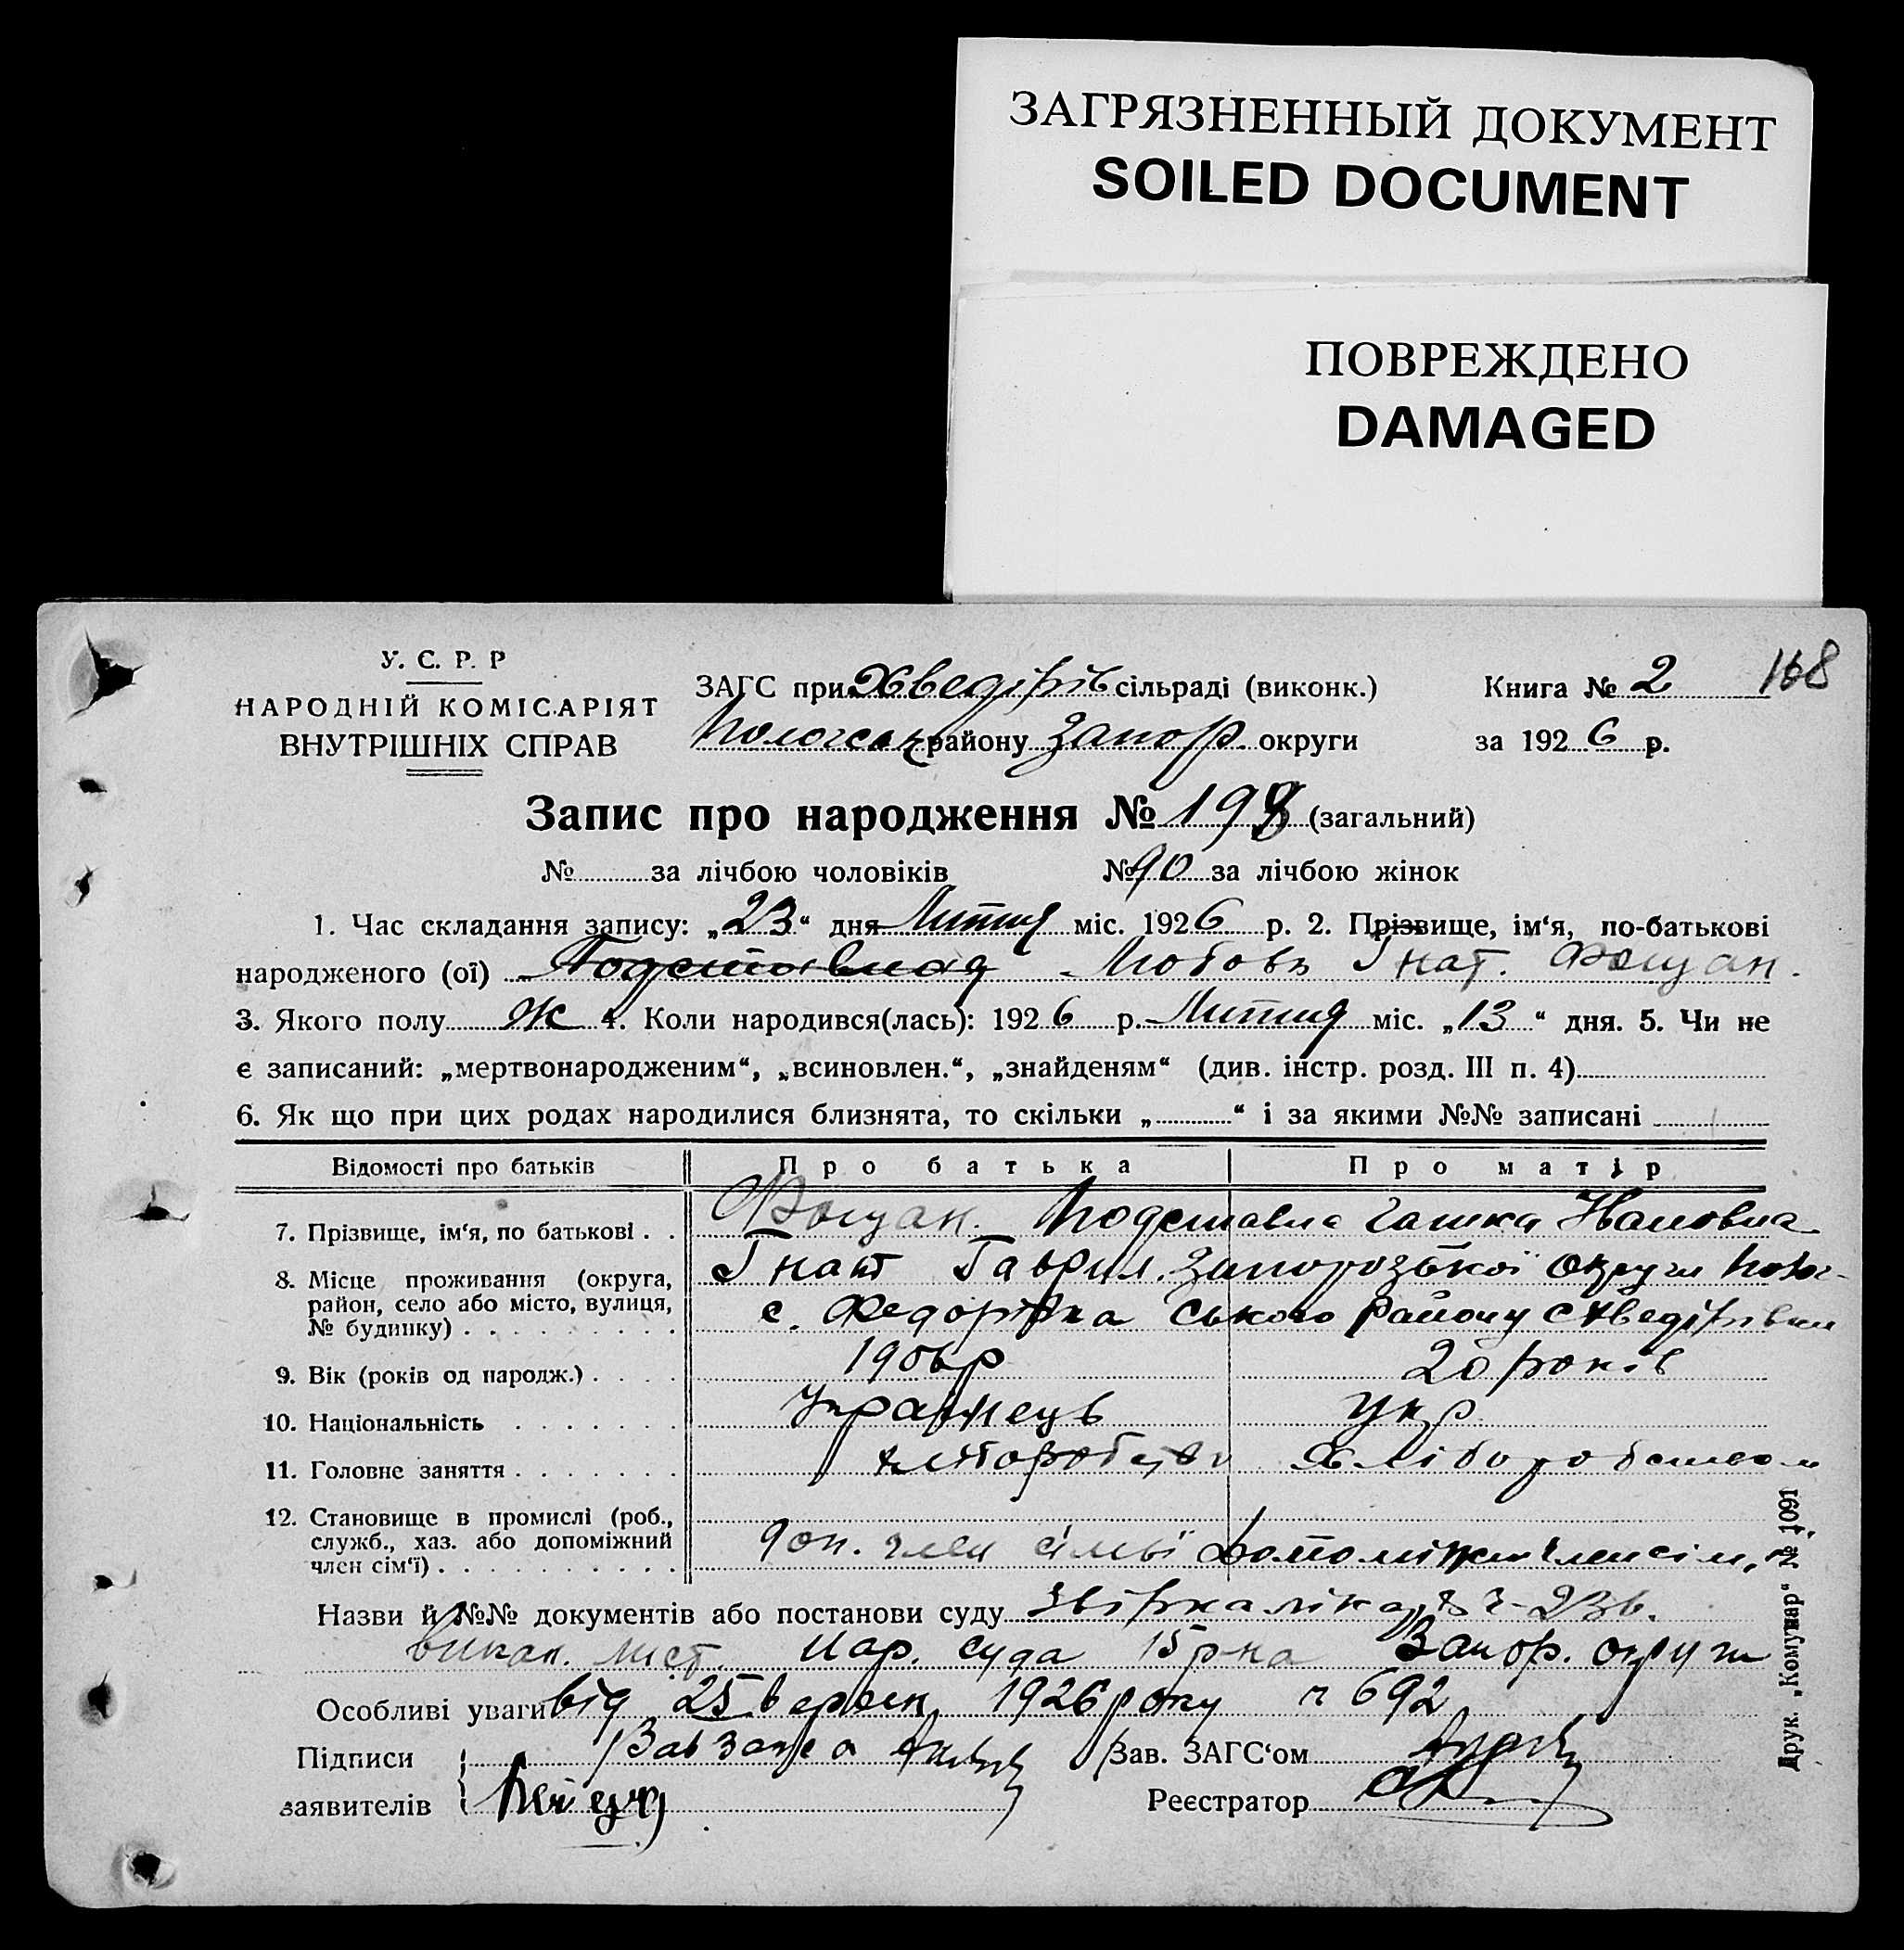 ЗАГРЯЗНЕННЫЙ ДОКУМЕНТ
SOILED DOCUMENT
ПОВРЕЖДЕНО
DAMAGED
У. С. Р. Р
НАРОДНІЙ КОМІСАРІЯТ
ВНУТРІШНІХ СПРАВ
ЗАГС при Хведірів сільраді (виконк.)
Пологськ району Запор. округи
Книга № 2 168
за 1926 р.
Запис про народження № 198 (загальний)
№ за лічбою чоловіків № 90 за лічбою жінок
1. Час складання запису: „23“ дня Липня міс. 1926 р. 2. Прізвище, ім‘я, по-батькові
народженого (ої) Подставная Любовь Гнат. Фощан.
3. Якого полу Ж 4. Коли народився(лась): 1926 р. Липня міс. „13“ дня. 5. Чи не
є записаний: „мертвонародженим“, „всиновлен.“, „знайденям“ (див. інстр. розд. III п. 4)
6. Як що при цих родах народилися близнята, то скільки „ “ і за якими №№ записані
Відомості про батьків Про батька Про матір
7. Прізвище, ім‘я, по батькові . . Фощан. Подставна Гашка Ивановна
8. Місце проживання (округа, Гнат Гаврил. Запорозької округи Полог-
район, село або місто, вулиця, с. Федорівка ського району с Хведірівки
№ будинку)
9. Вік (років од народж.) . . . . 1906 р 20 років
10. Національність Українець Укр
11. Головне заняття Хліборобство
12. Становище в промислі (роб.,
служб., хаз. або допоміжний доп. член сімьї
член сім‘ї)
Назви й №№ документів або постанови суду
викон. лист. Нар. суда 15 р-на Запор. округи
Особливі уваги від 25 вересн 1926 року ч 692
Підписи Зав. ЗАГС‘ом
заявителів Реєстратор
Друк. „Комунар“ № 1091